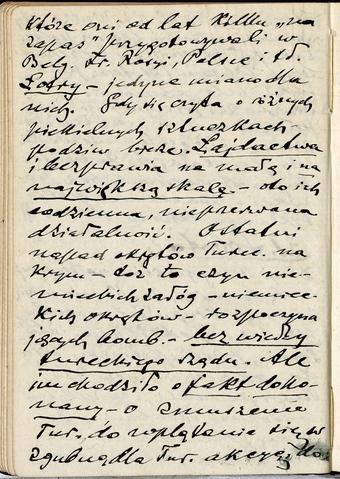 które oni od lat kilku „na
zapas" przygotowywali w
Belg. Fr. Rosyi, Polsce i td.
Łotry – jedyne miano dla
nich. Gdy się czyta o różnych
piekielnych sztuczkach –
podziw bierze. Łajdactwa
i bezprawia na małą i na
największą skalę – oto ich
codzienna, nieprzerwana
działalność. Ostatni
napad okrętów Turec. na
Krym – toż to czyn nie-
mieckich załóg – niemiec-
kich okrętów – rozpoczyna
jących bomb. – bez wiedzy
tureckiego rządu. Ale
im chodziło o fakt doko-
nany – o zmuszenie
Tur. do wplątania się w
zgubną dla Tur. akcyę, do